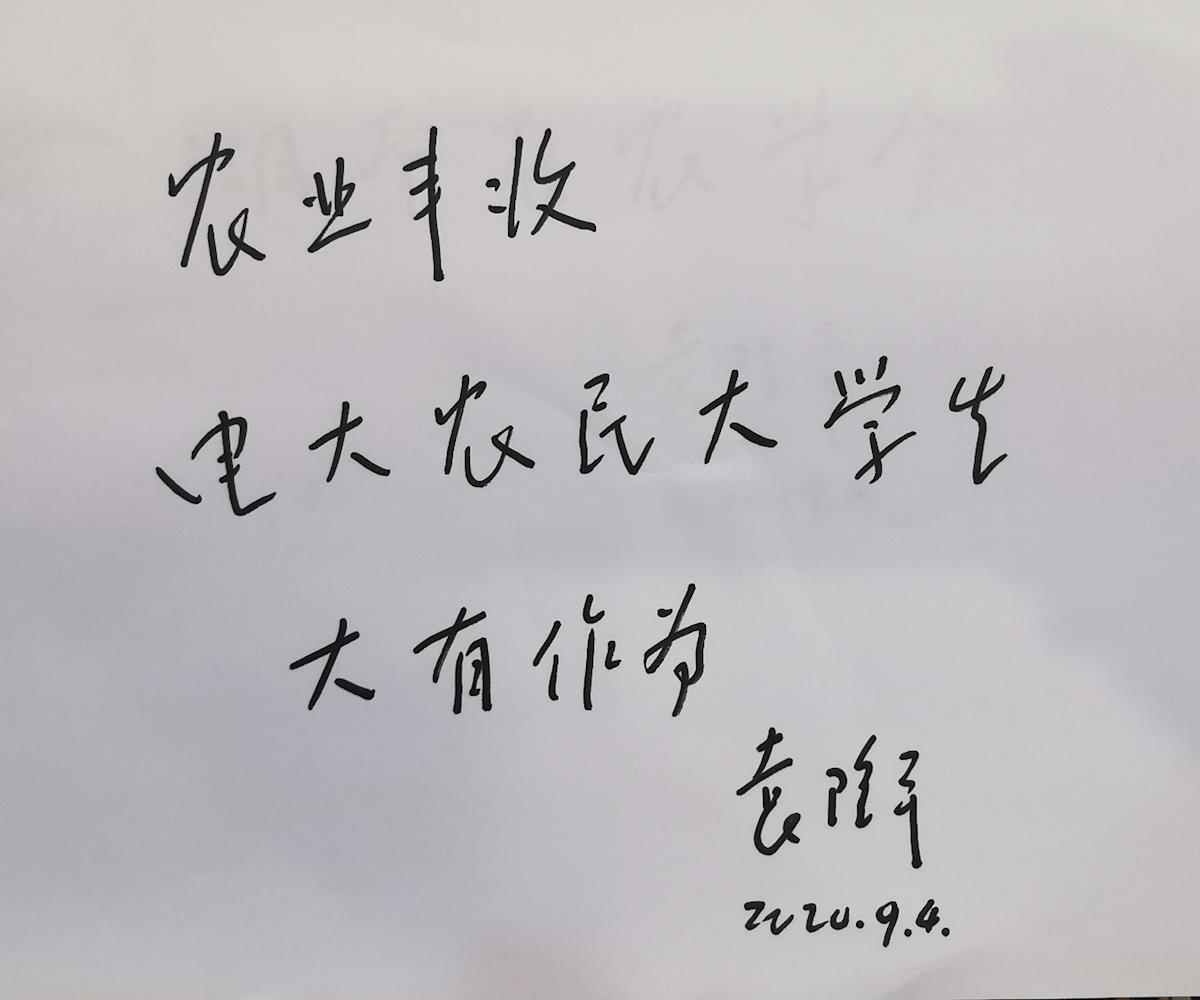 农业丰收
电大农民大学生
大有作为
袁隆平
2020.9.4.